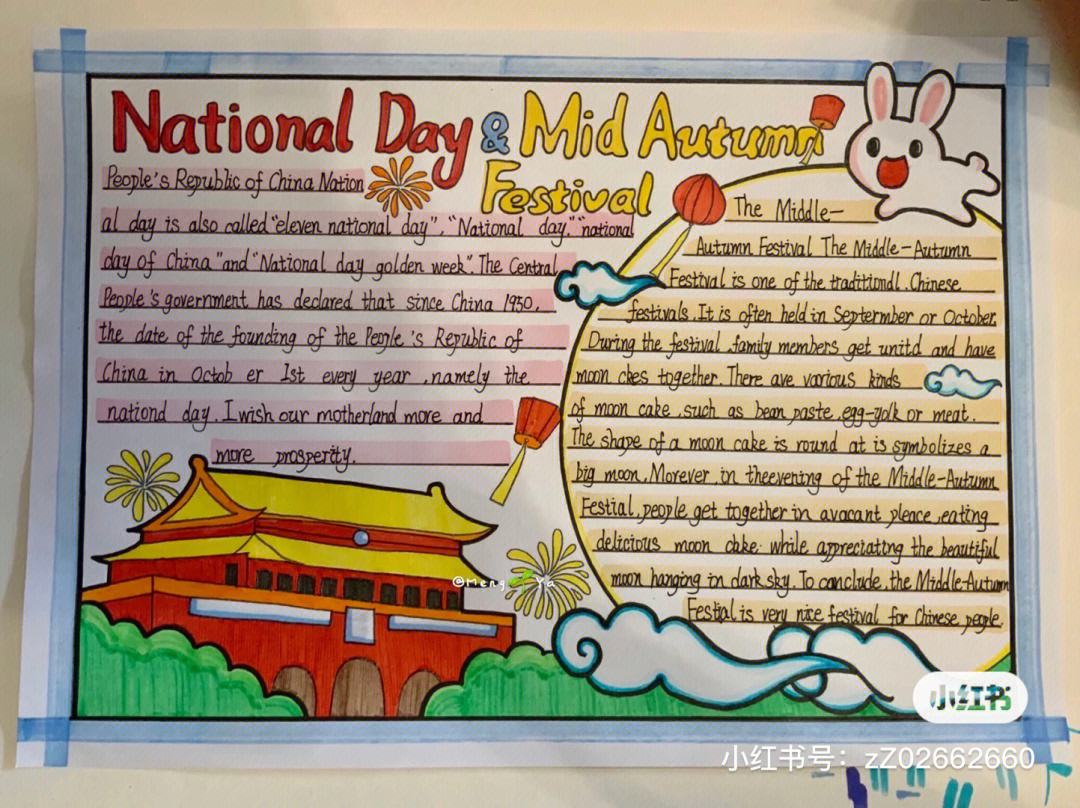 National Day & Mid Autumn
Festival
People's Republic of China Nation
al day is also called "eleven national day", "National day." "national
day of China" and "National day golden week". The Central
People's government has declared that since China 1950,
the date of the founding of the People's Republic of
China in Octob er 1st every year, namely the
nationd day. I wish our motherland more and
more prosperity.
The Middle-
Autumn Festival The Middle-Autumn
Festival is one of the traditiondl. Chinese
festivals. It is often held in Septermber or October.
During the festival, family members get unitd and have
moon ckes together. There ave various kinds
of moon cake, such as bean paste, egg-yolk or meat.
The shape of a moon cake is round at is symbolizes a
big moon. Morever, in theevening of the Middle-Autumn
Festial, people get together in avacant pleace, eating
delicious moon cake. while appreciating the beautiful
moon hanging in dark sky. To conclude, the Middle-Autumn
Festial is very nice festival for Chinese people.
@Meng Ya
小红书
小红书号：zZ02662660